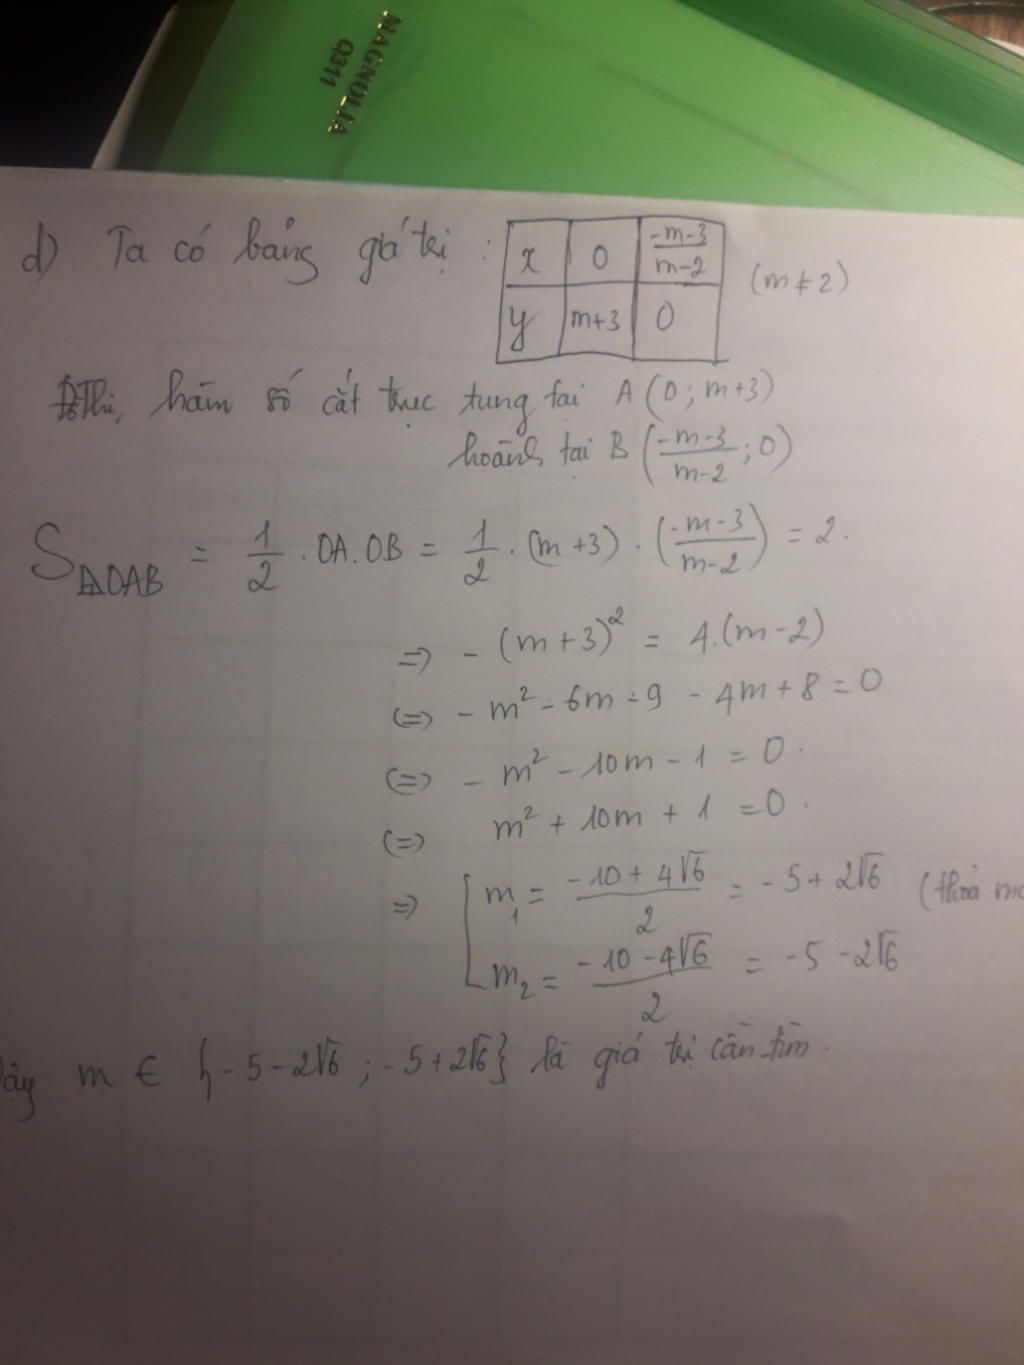 MAGNOLIA
Q311
d) Ta có bảng giá trị : x 0 \frac{-m-3}{m-2} (m ≠ 2)
y m+3 0
Đồ Thị hàm số cắt trục tung tại A (0 ; m+3)
hoành tại B (\frac{-m-3}{m-2} ; 0)
S_{ΔOAB} = \frac{1}{2} . OA.OB = \frac{1}{2} . (m+3) . (\frac{-m-3}{m-2}) = 2.
=> - (m+3)^2 = 4.(m-2)
<=> - m^2 - 6m - 9 - 4m + 8 = 0
<=> - m^2 - 10m - 1 = 0.
<=> m^2 + 10m + 1 = 0.
=> [ m_1 = \frac{-10 + 4√6}{2} = -5 + 2√6 (thoả
m_2 = \frac{-10 - 4√6}{2} = -5 - 2√6
Vậy m ∈ {-5-2√6 ; -5+2√6} là giá trị cần tìm.